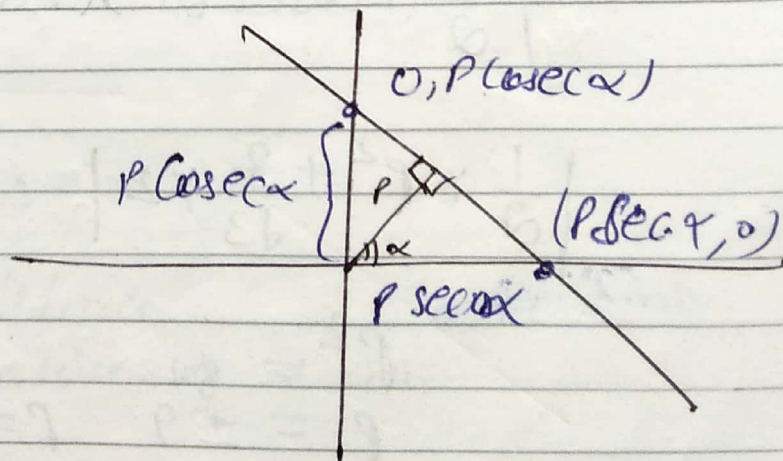 0, P Cosec α)
P Cosec α
P
α
(P Sec α, 0)
P sec α